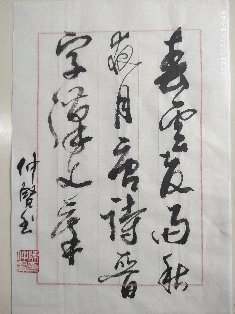 春雲夏雨秋
夜月唐詩晉
字漢文章
付